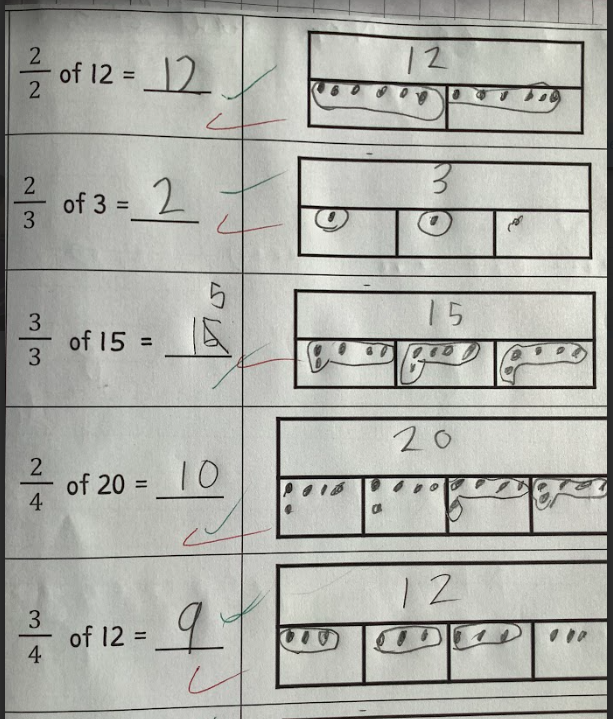 2/2 of 12 = 12
12
2/3 of 3 = 2
3
3/3 of 15 = 15
5
15
2/4 of 20 = 10
20
3/4 of 12 = 9
12